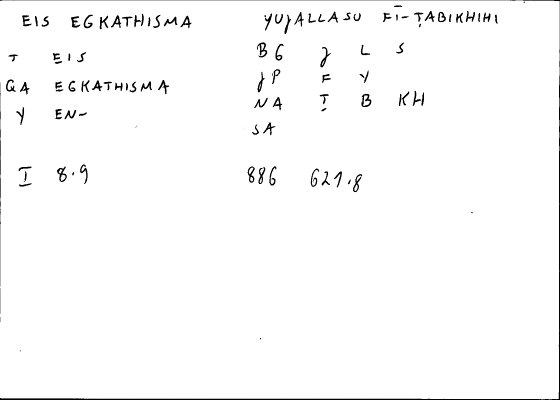 EIS EGKATHISMA YUJALLASU FĪ-ṬABIKHIHI
T EIS BG J L S
QA EGKATHISMA JP F Y
Y EN- NA Ṭ B KH
SA
I 8.9 886 621.8